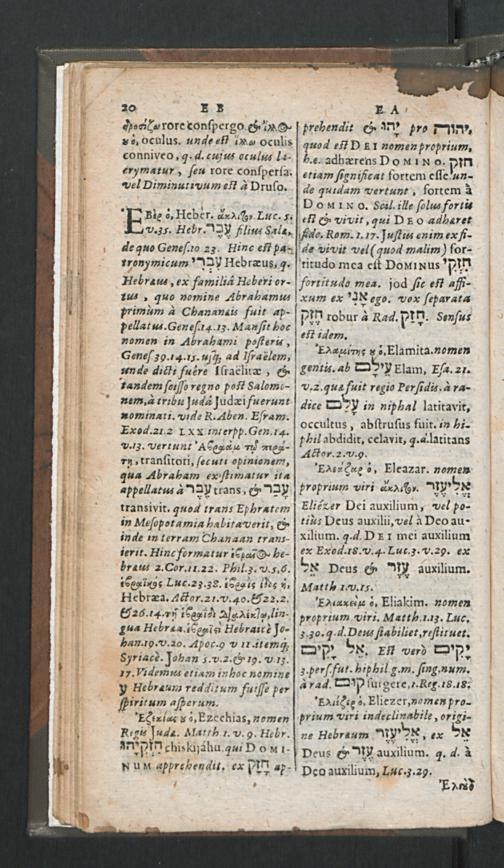 20 E B
δροσίζω rore conspergo & ἴλλ⊙
ου ὁ, oculus. unde est ἴλλω oculis
conniveo, q.d. cujus oculus la-
crymatur, seu rore conspersa.
vel Diminutivum est à Druso.
ἘΒὶρ ὁ, Heber. ἄκλιτον. Luc. 3.
v.35. Hebr. עֵבֶר filius Salæ,
de quo Genes.10 23. Hinc est pa-
tronymicum עִבְרִי Hebræus, q.
Hebræus, ex familiâ Heberi or-
tus, quo nomine Abrahamus
primùm à Chananæis fuit ap-
pellatus. Genes.14.13. Mansit hoc
nomen in Abrahami posteris,
Genes 39.14.15. usq; ad Israëlem,
unde dicti fuêre Israëlitæ, &
tandem scisso regno post Salomo-
nem, à tribu Judâ Judæi fuerunt
nominati. vide R. Aben. Esram.
Exod.21.2 LXX interpp. Gen.14.
v.13. vertunt Ἀβραὰμ τῷ περά-
τῃ, transitori, secuti opinionem,
qua Abraham existimatur ita
appellatus à עֵבֶר trans, & עָבַר
transivit. quod trans Ephratem
in Mesopotamia habitaverit, &
inde in terram Chanaan trans-
ierit. Hinc formatur ἑβραῖ⊙ he-
bræus 2.Cor.11.22. Phil.3.v.5.6.
ἑβραϊκὸς Luc.23.38. ἑβραῒς ίδος ἡ.
Hebræa. Actor.21.v.40. & 22.2.
& 26.14. τῇ ἑβραΐδι διαλέκτῳ, lin-
gua Hebræa. ἑβραϊστὶ Hebraicè Jo-
han.19.v.20. Apoc.9 v 11. itemq;
Syriacè. Johan 5.v.2. & 19. v.13.
17. Videmus etiam in hoc nomine
ע Hebræum redditum fuisse per
spiritum asperum.
Ἐζεκίας ου ὁ, Ezechias, nomen
Regis Judæ. Matth 1. v. 9. Hebr.
חִזְקִיָּהוּ chiskijáhu. qui DOMI-
NUM apprehendit. ex חָזַק ap-
E A
prehendit & יָהוּ pro יְהוֹרָה,
quod est DEI nomen proprium,
h.e. adhærens DOMINO. חזק
etiam significat fortem esse. un-
de quidam vertunt, fortem à
DOMINO. Scil. ille solus fortis
est & vivit, qui DEO adhæret
fide. Rom.1.17. Justus enim ex fi-
de vivit vel (quod malim) for-
titudo mea est DOMINUS חִזְקִי
fortitudo mea. jod sic est affi-
xum ex אֲנִי ego. vox separata
חֹזֶק robur à Rad. חָזַק. Sensus
est idem.
Ἐλαμίτης ου ὁ, Elamita. nomen
gentis. ab עֵילָם Elam, Esa. 21.
v.2. quæ fuit regio Persidis. à ra-
dice עָלַם in niphal latitavit,
occultus, abstrusus fuit. in hi-
phil abdidit, celavit, q.d. latitans
Actor.2.v.9.
Ἐλεάζαρ ὁ, Eleazar. nomen
proprium viri ἄκλιτον. אֱלִיעֶזֶר
Eliézer Dei auxilium, vel po-
tiùs Deus auxilii, vel à Deo au-
xilium. q.d. DEI mei auxilium
ex Exod.18.v.4. Luc.3.v.29. ex
אֵל Deus & עֵזֶר auxilium.
Matth 1.v.15.
Ἐλιακεὶμ ὁ, Eliakim. nomen
proprium viri. Matth.1.13. Luc.
3.30. q.d. Deus stabiliet, restituet.
אֵל יָקִים. Est verò יָקִים
3.pers. fut. hiphil g.m. sing. num.
à rad. קוּם surgere, 1. Reg.18.18.
Ἐλιέζερ ὁ, Eliezer, nomen pro-
prium viri indeclinabile, origi-
ne Hebræum אֱלִיעֶזֶר, ex אֵל
Deus & עֵזֶר auxilium. q. d. à
Deo auxilium, Luc.3.29.
Ἐλιοὺδ